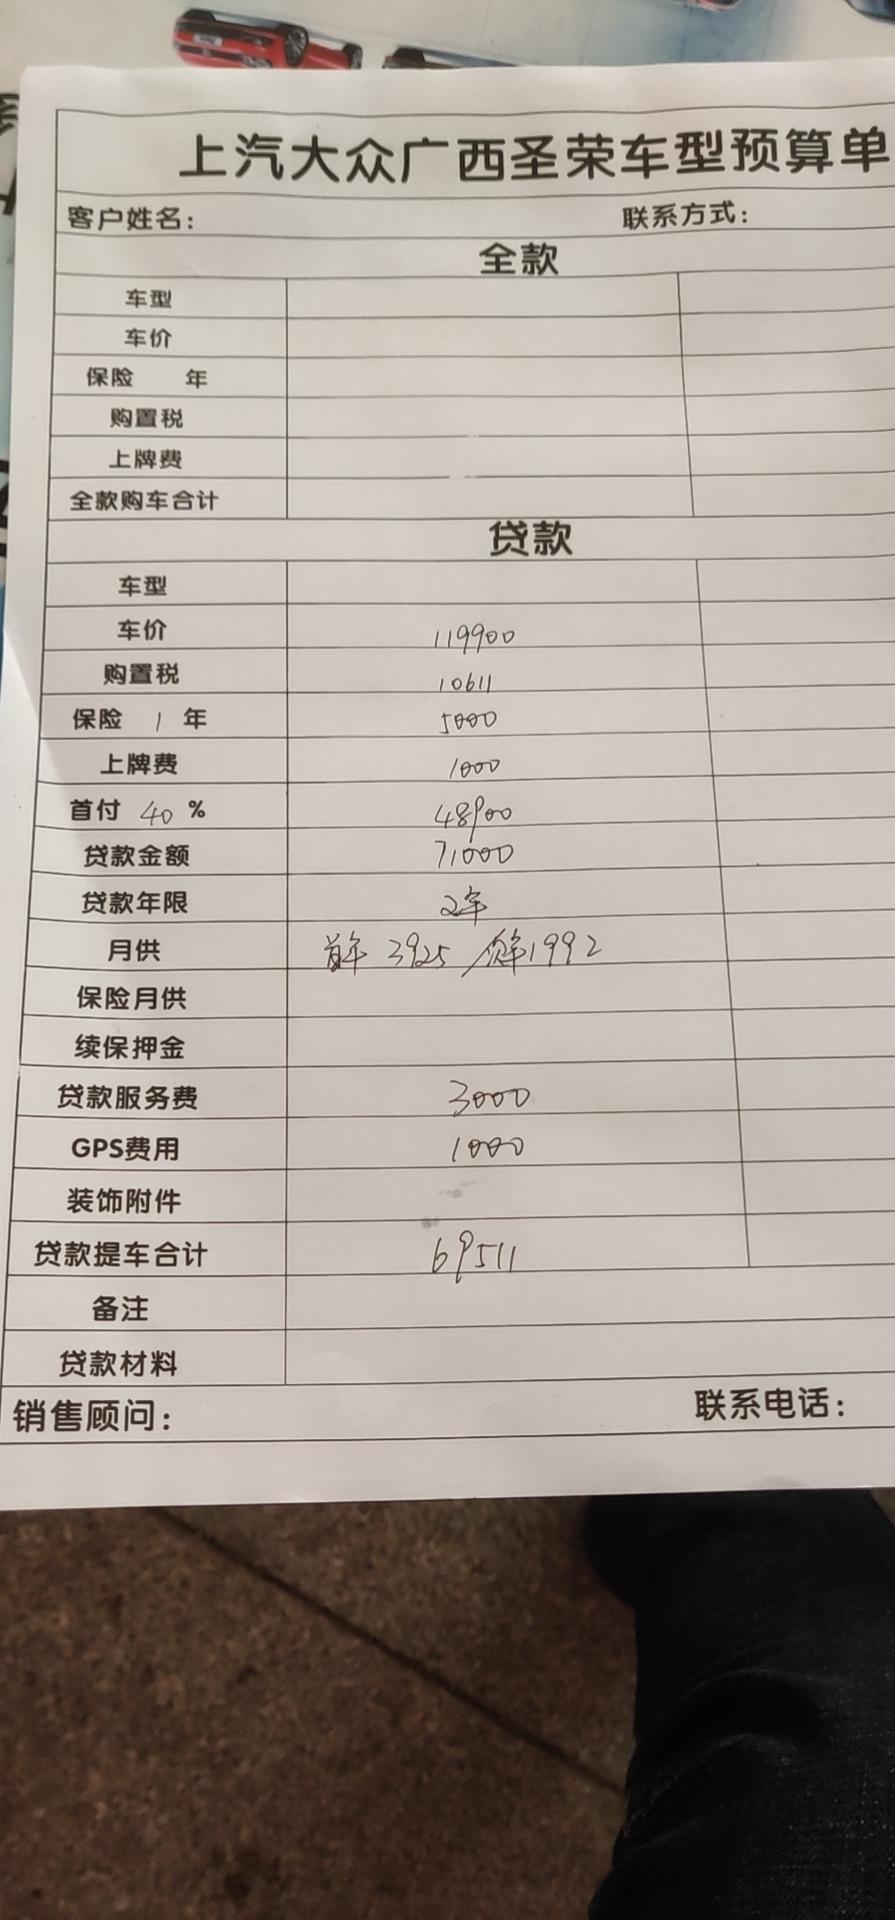 上汽大众广西圣荣车型预算单
客户姓名: 联系方式:
全款
车型
车价
保险 年
购置税
上牌费
全款购车合计
贷款
车型
车价 119900
购置税 10611
保险 1 年 5000
上牌费 1000
首付 40 % 48900
贷款金额 71000
贷款年限 2年
月供 首年 3925 / 次年1992
保险月供
续保押金
贷款服务费 3000
GPS费用 1000
装饰附件
贷款提车合计 69511
备注
贷款材料
销售顾问: 联系电话: